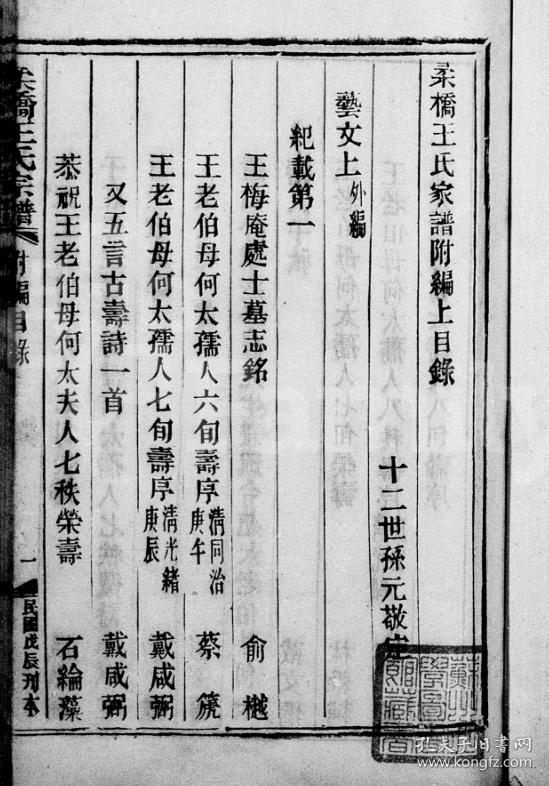 柔橋王氏家譜附編上目錄
十二世孫元敬
藝文上外編
紀載第一
王梅庵處士墓志銘 俞樾
王老伯母何太孺人六旬壽序清同治庚午 蔡篪
王老伯母何太孺人七旬壽序清光緒庚辰 戴咸弼
又五言古壽詩一首 戴咸弼
恭祝王老伯母何太夫人七秩榮壽 石綸藻
柔橋王氏宗譜 附編目錄 一 民國戊辰刊本
孔夫子旧书网
www.kongfz.com